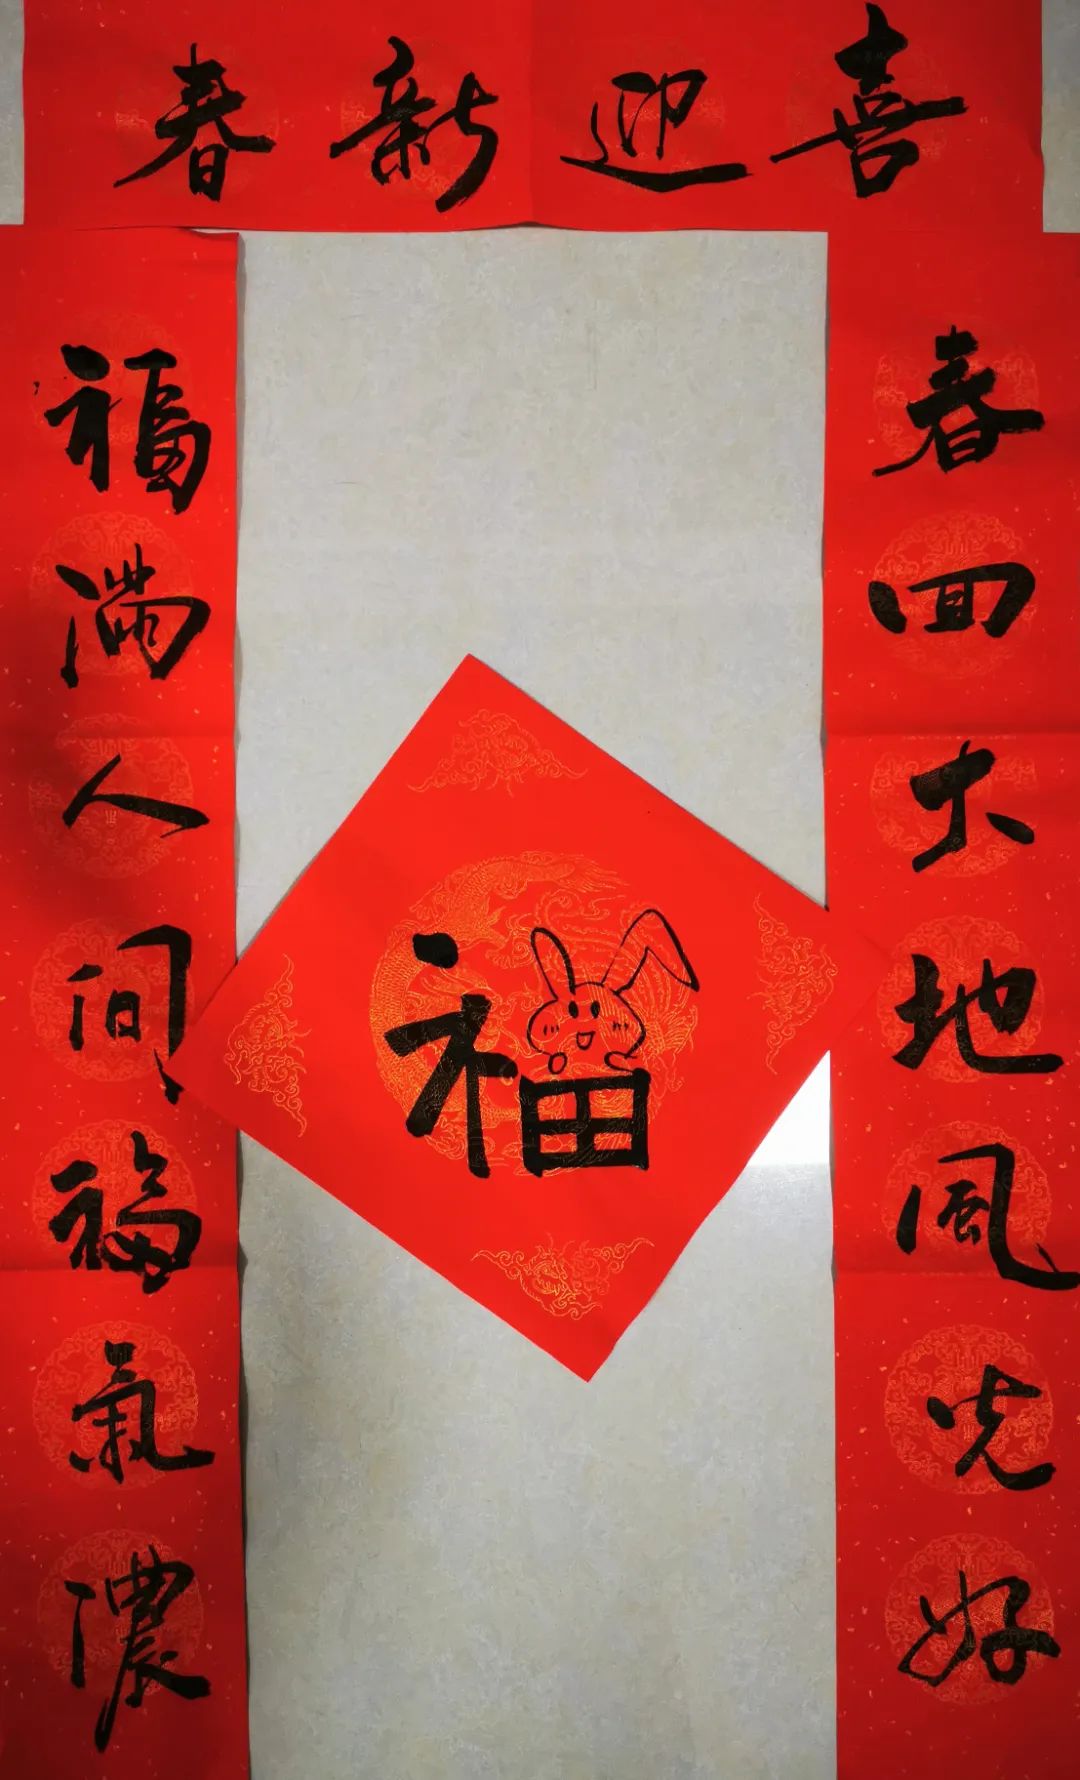 喜迎新春
春回大地風光好
福滿人間福氣濃
福